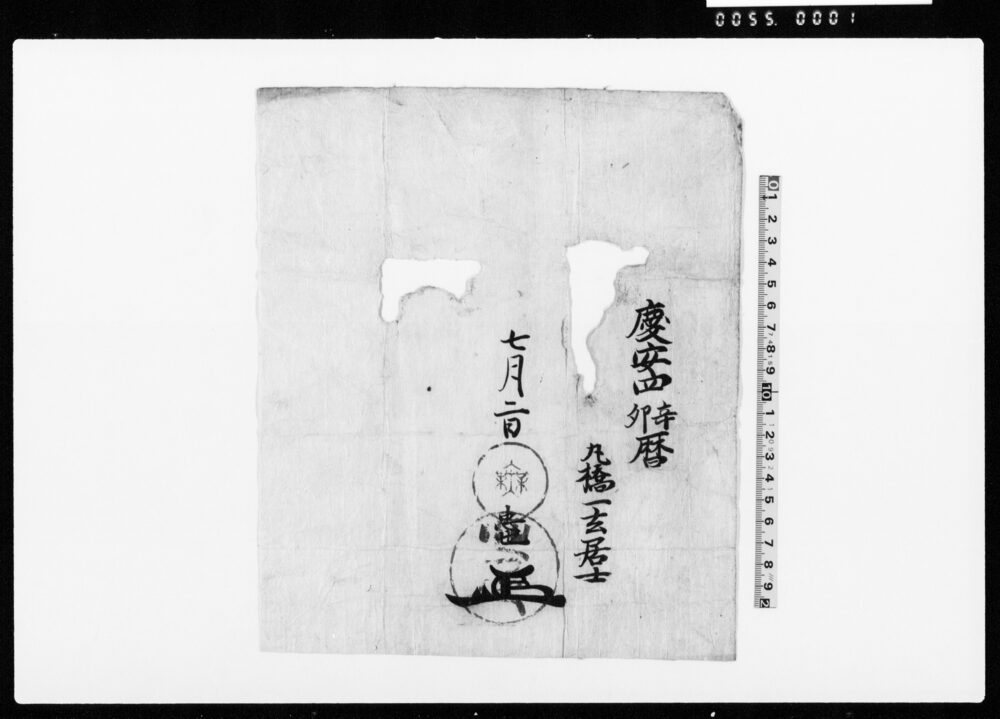 0055. 0001
慶安四辛卯暦
丸橋一玄居士
七月二日
0 1 2 3 4 5 6 7 8 9 10 1 2 3 4 5 6 7 8 9 2